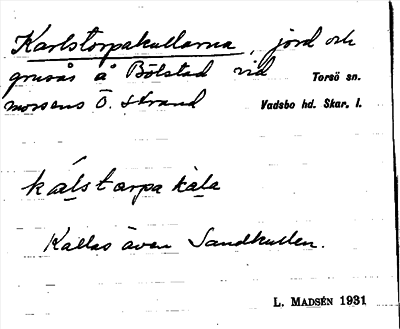 Karlstorpakullarna, jord och
grusås å Bölstad vid Torsö sn.
mossens Ö. strand Vadsbo hd. Skar. l.
kálstarpa kàla
Kallas även Sandkullen.
L. MADSÉN 1931